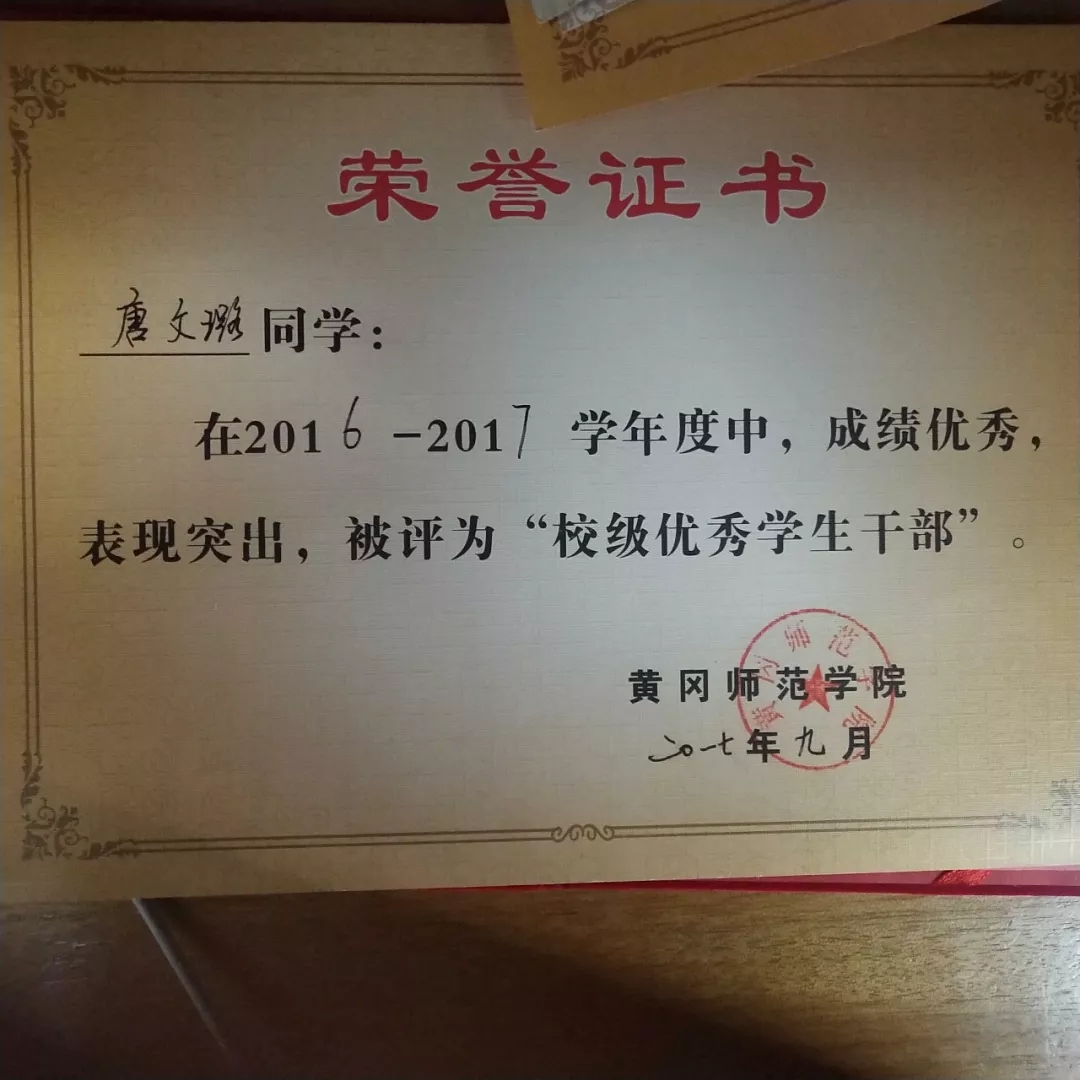 荣誉证书
唐文璐同学：
在2016-2017学年度中，成绩优秀，
表现突出，被评为“校级优秀学生干部”。
黄冈师范学院
二〇一七年九月
黄冈师范学院